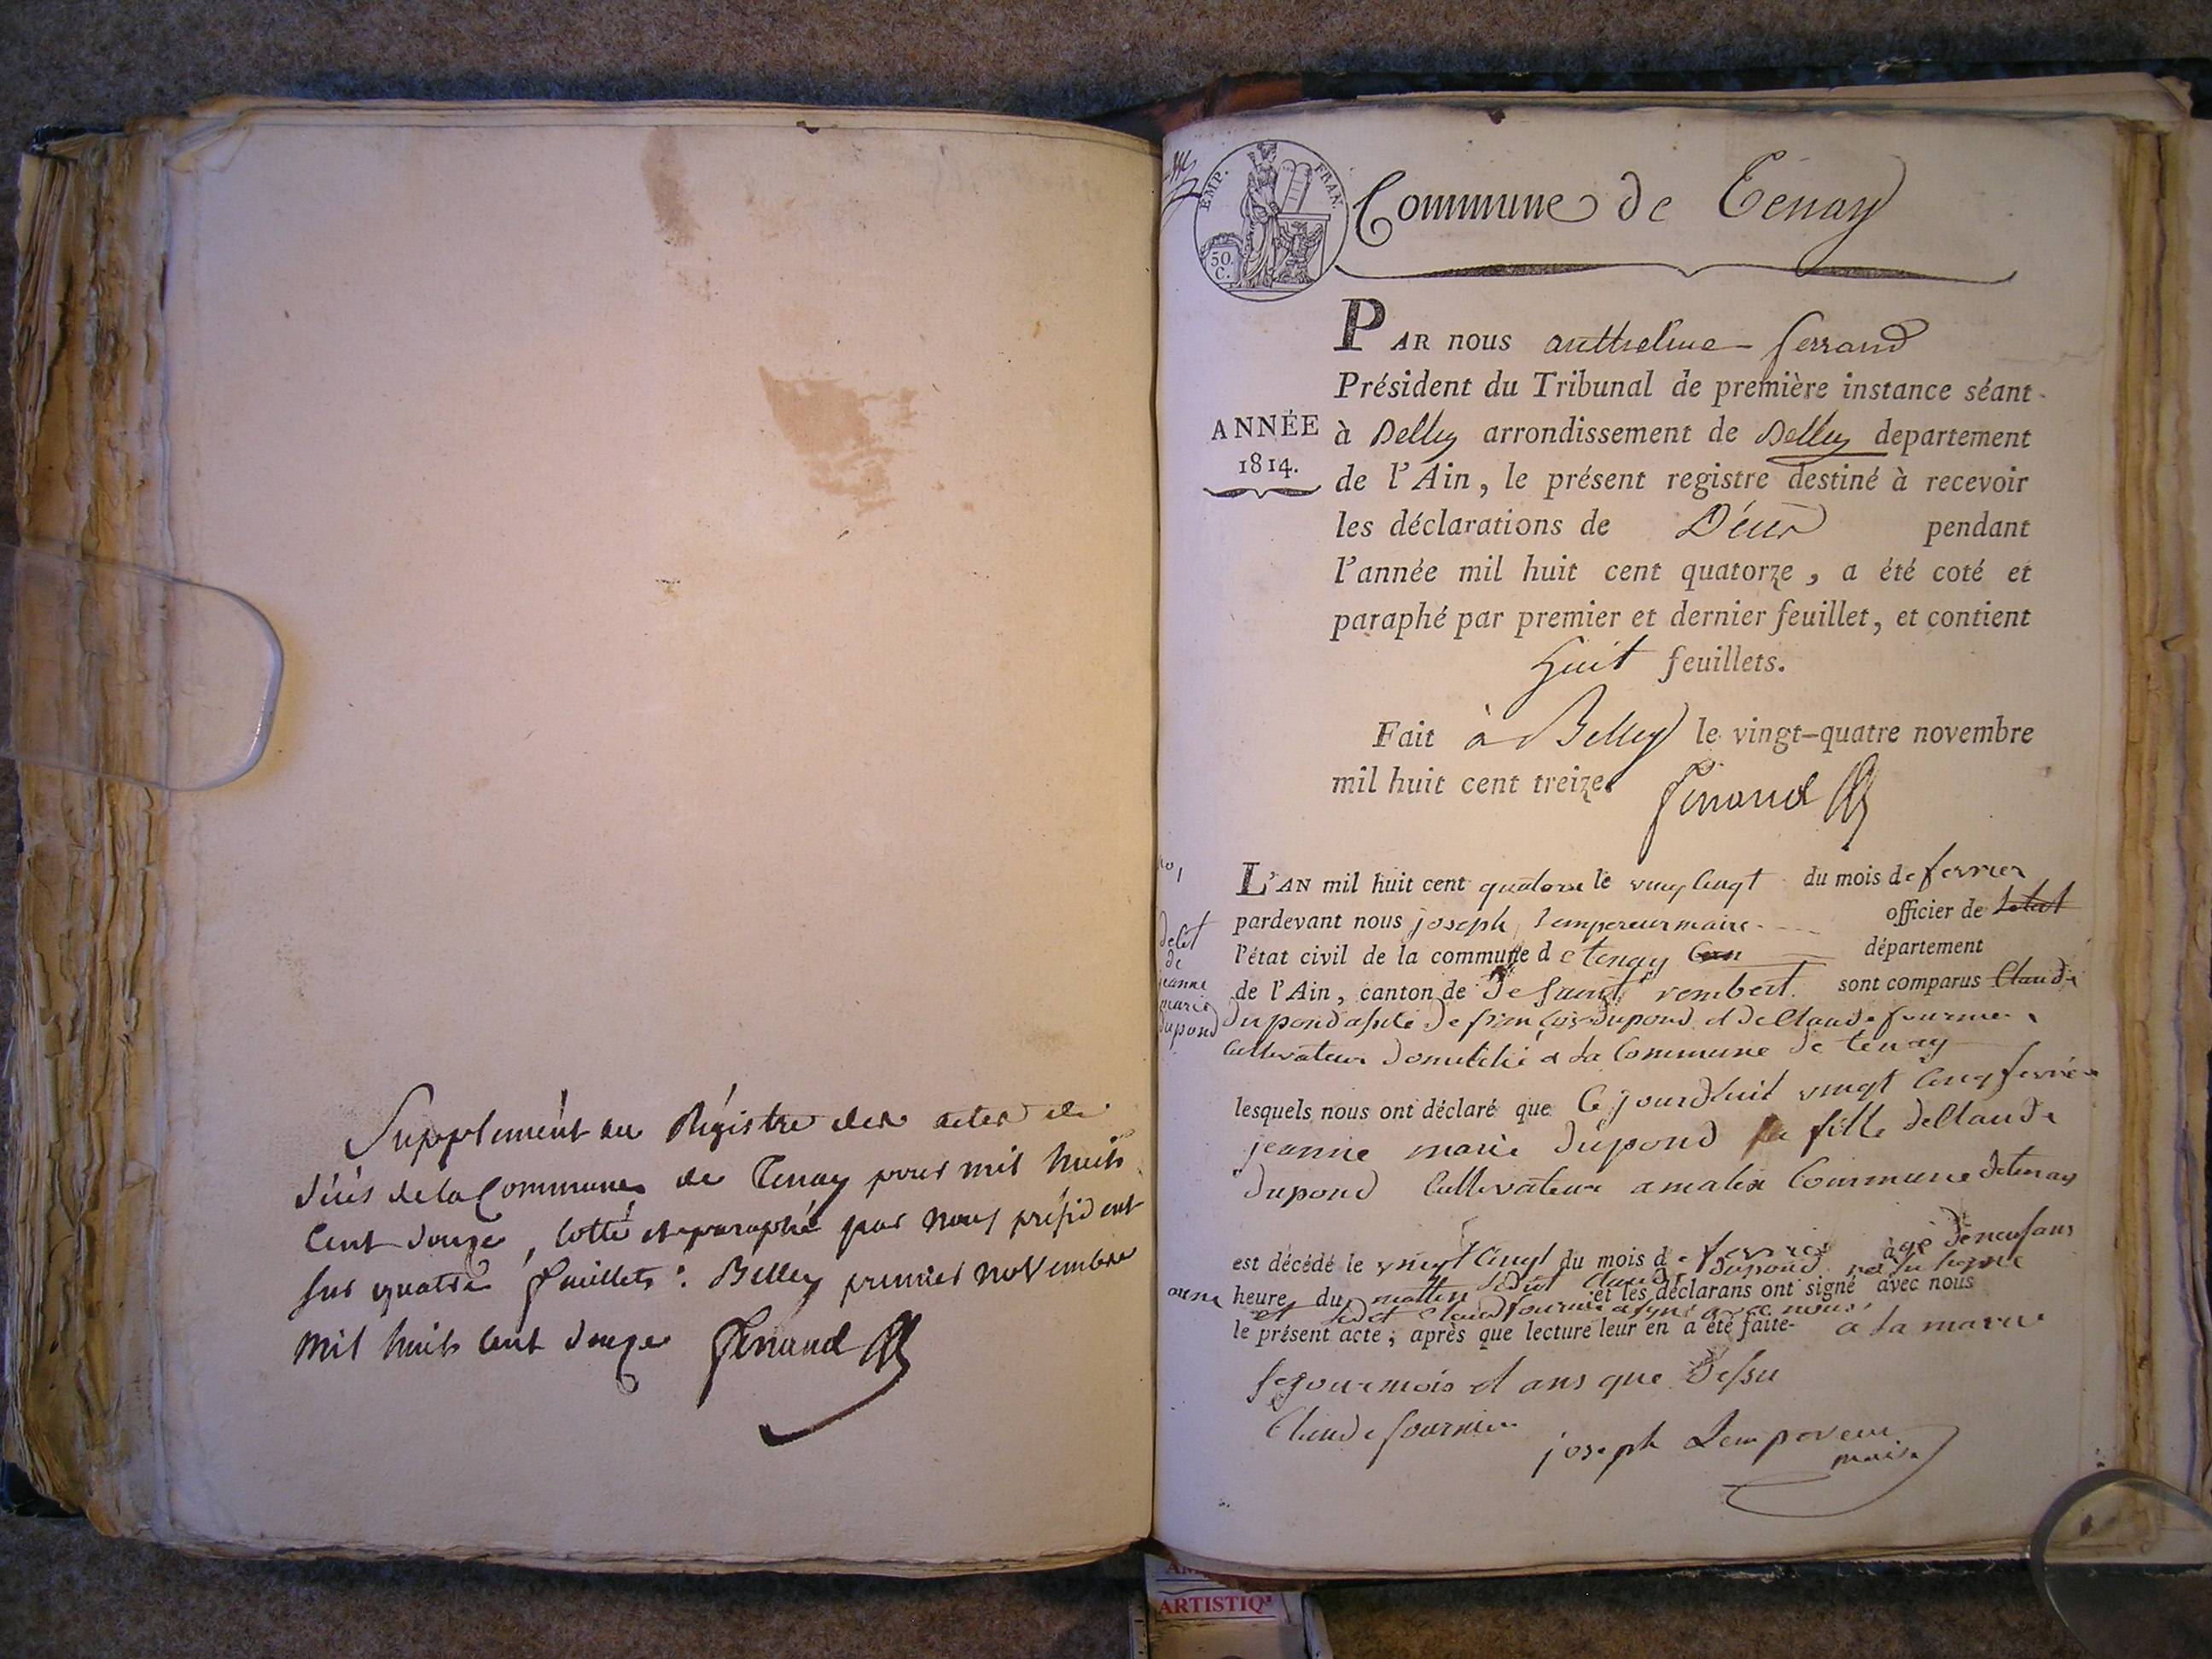 Supplément au Régistre des actes de
décès de la Commune de Tenay pour mil huit
Cent douze, Cotté et paraphé par nous président
sur quatre feuillets : Belley premier novembre
mil huit Cent douze Ferrand
EMP. FRAN.
50 C.
Commune de Tenay
PAR nous anthelme ferrand
Président du Tribunal de première instance séant
ANNÉE
1814.
à Belley arrondissement de Belley departement
de l'Ain, le présent registre destiné à recevoir
les déclarations de Décès pendant
l'année mil huit cent quatorze, a été coté et
paraphé par premier et dernier feuillet, et contient
huit feuillets.
Fait à Belley le vingt-quatre novembre
mil huit cent treize. Ferrand
L'AN mil huit cent quatorse le vingt cinqt du mois de fevrier
pardevant nous joseph lempereur maire officier de
l'état civil de la commune de tenay département
de l'Ain, canton de de saint rembert. sont comparus Claude
dupond de françois dupond et de Claude fournier
Cultivateur domicilié a la Commune de tenay
delet
de
jeanne
marie
dupond
lesquels nous ont déclaré que Ce jourdhuit vingt cinq fevrier
jeanne marie dupond fille de Claude
dupond Cultivateur a malix Commune de tenay
est décédé le vingt cinqt du mois de fevrier âgé de neuf ans
heure du mattin ledit Claude dupond
et les déclarans ont signé avec nous
et ledit Claud fournier a signé avec nous
le présent acte; après que lecture leur en a été faite- a la marie
le jour mois et ans que dessu
Claude fournier joseph Lempereur
maire
ARTISTIQ